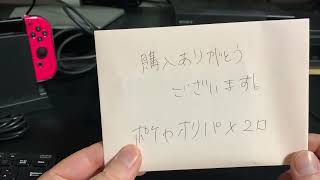 購入ありがとう
ございます。
ポケカオリパ×2口